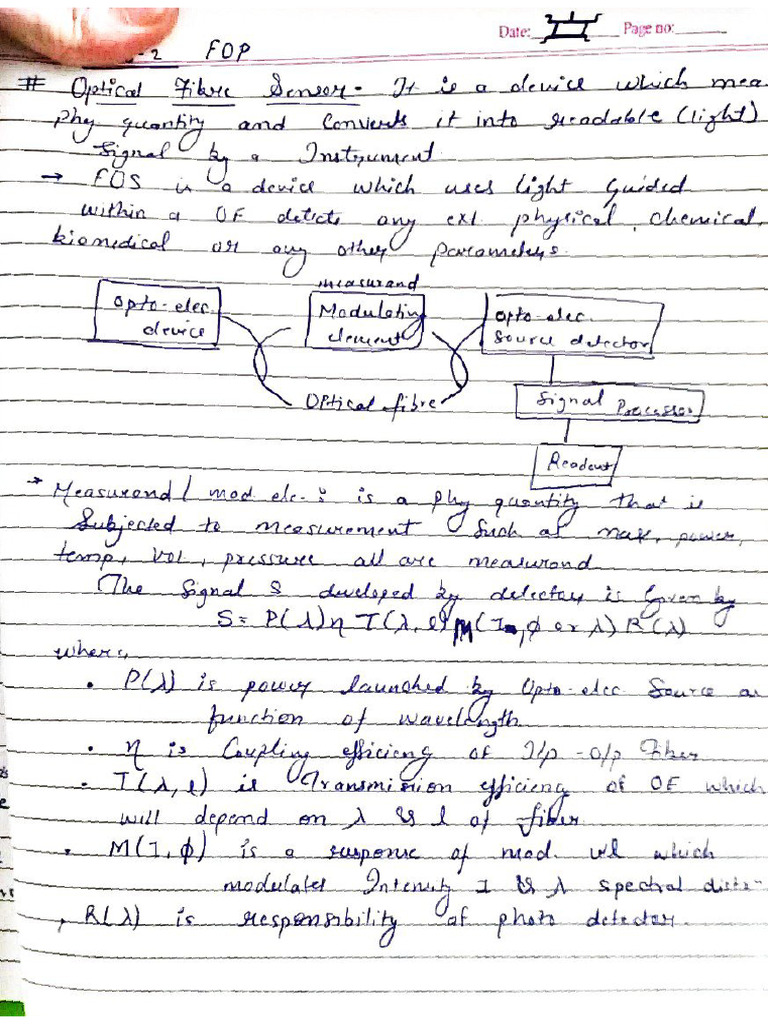 Date: Page no:
-2 FOP
# Optical Fibre Sensor - It is a device which mea
Phy quantity and converts it into readable (light)
Signal by a Instrument
→ FOS is a device which uses light guided
within a OF detects any ext. physical, chemical,
biomedical or any other parameters.
measurand
Opto-elec. Modulating Opto-elec.
device element Source detector
Optical fibre Signal Processor
Readout
→ Measurand / mod. ele- : is a phy quantity that is
Subjected to measurement such as mass, power,
temp, vol, pressure all are measurand
(The signal S developed by detector is given by
S = P(λ) η T(λ, l) M(I, ϕ or λ) R(λ)
where,
• P(λ) is power launched by Opto-elec Source as
function of wavelength
• η is Coupling efficieng of I/p - O/p Fiber
• T(λ, l) is transmission efficieng of OF which
will depend on λ & l of fiber
• M(I, ϕ) is a response of mod. which
modulates Intensity I & λ spectral dist-
, R(λ) is responsibility of photo detector.